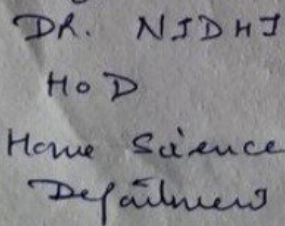 DR. NIDHI
HoD
Home Science
Department